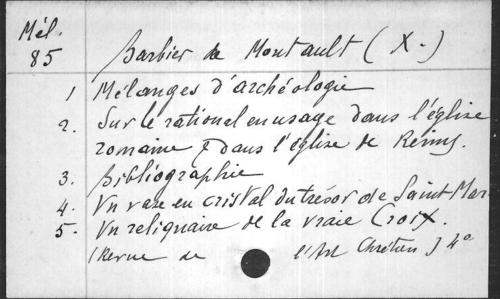 Mél.
85
Barbier de Montault (X.)
1 Mélanges d'archéologie
2. Sur le rational en usage dans l'église
romaine & dans l'église de Reims.
3. Bibliographie
4. Un vase en cristal du trésor de Saint Mar
5. Un reliquaire de la vraie Croix.
(Revue de l'Art Chrétien) 4°